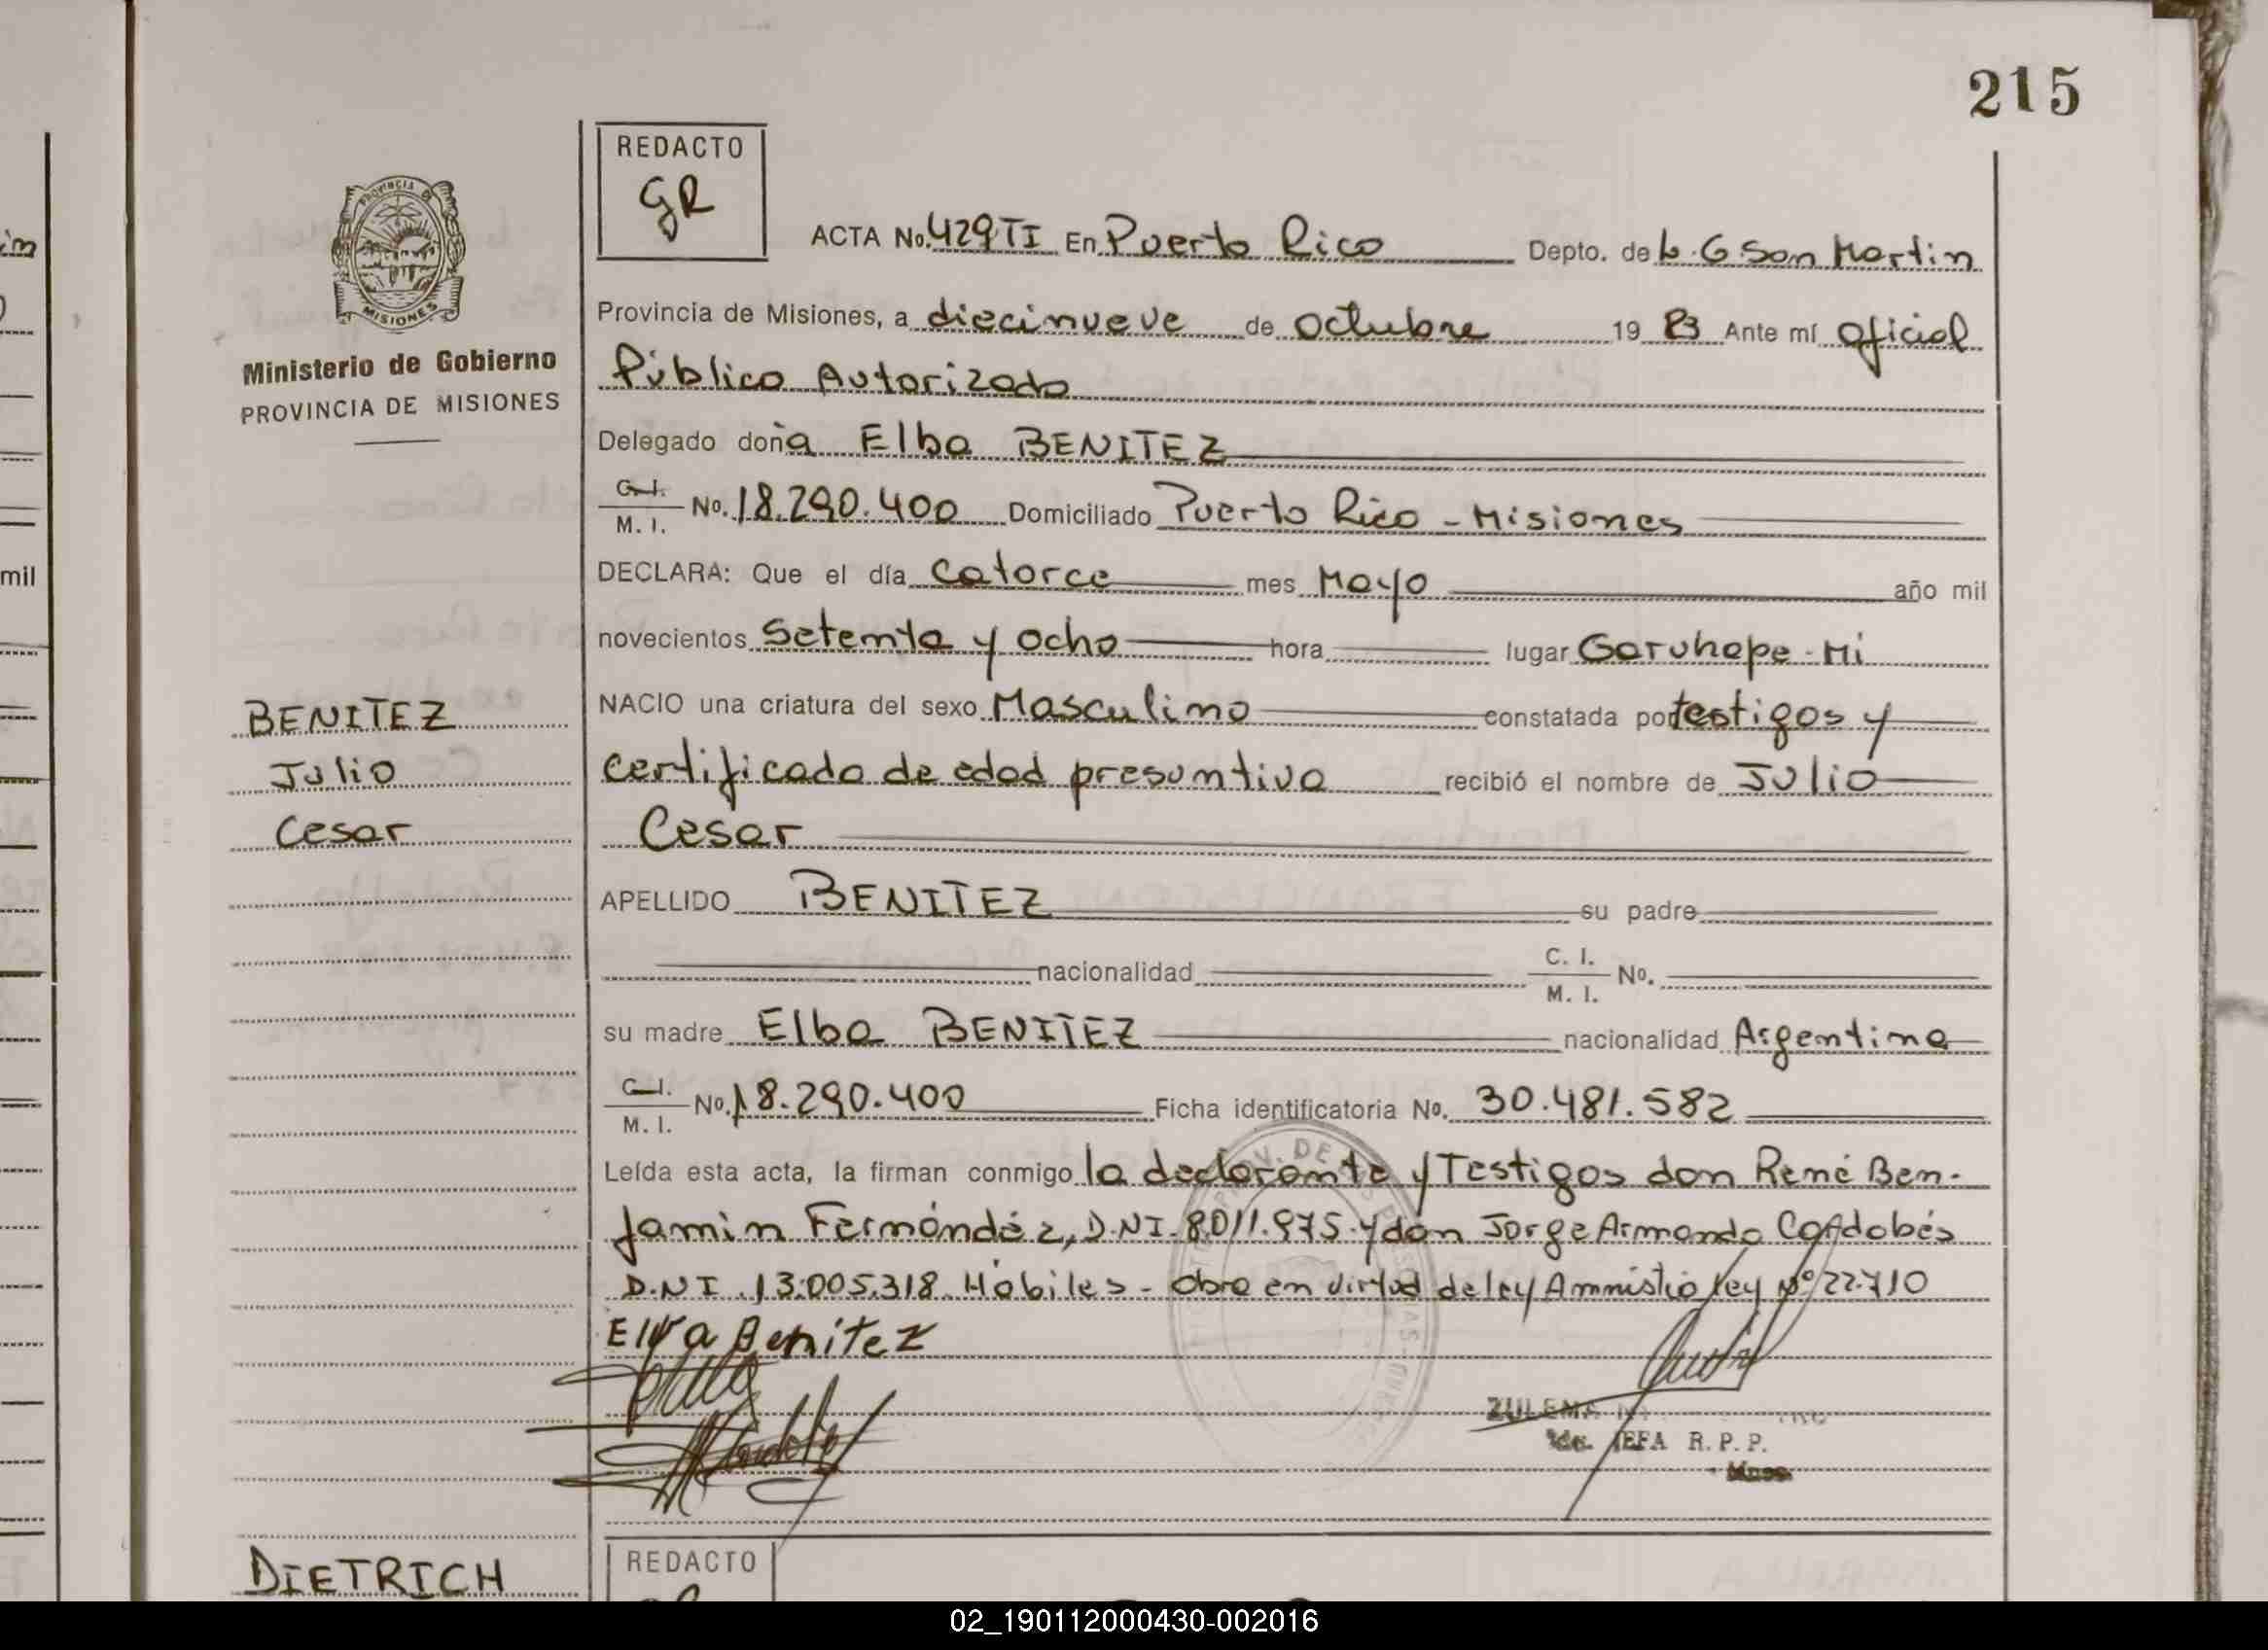 215
REDACTO
GR
ACTA No. 429 TI En Puerto Rico Depto. de L. G. San Martin
Provincia de Misiones, a diecinueve de octubre 19 83 Ante mí oficial
Público Autorizado
Ministerio de Gobierno
PROVINCIA DE MISIONES
Delegado doña Elba BENITEZ
C. I.
M. I. No. 18.290.400 Domiciliado Puerto Rico - Misiones
DECLARA: Que el día catorce mes Mayo año mil
novecientos setenta y ocho hora lugar Garuhape - Mi
NACIO una criatura del sexo Masculino constatada por testigos y
BENITEZ
certificado de edad presuntiva recibió el nombre de Julio
Julio
Cesar
Cesar
APELLIDO BENITEZ su padre
nacionalidad C. I.
M. I. No.
su madre Elba BENITEZ nacionalidad Argentina
C. I.
M. I. No. 18.290.400 Ficha identificatoria No. 30.481.582
Leída esta acta, la firman conmigo la declarante y Testigos don René Ben-
jamin Fernández, D.NI. 8.011.975 y don Jorge Armando Cordobés
D.N.I. 13.005.318 Hábiles - Obra en virtud de ley Amnistia Ley Nº 22.710
Elva Benitez
ZULEMA
JEFA R. P. P.
DIETRICH
REDACTO
mil
02_190112000430-002016